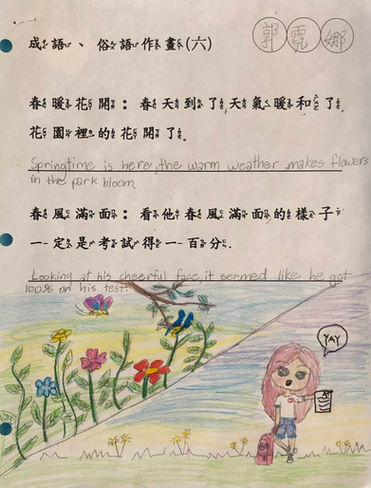 成語、俗語作畫(六)
郭霓娜
春暖花開：春天到了，天氣暖和了，
花園裡的花開了。
Springtime is here, the warm weather makes flowers
in the park bloom.
春風滿面：看他春風滿面的樣子
一定是考試得一百分.
Looking at his cheerful face, it seemed like he got
100% on his test.
YAY